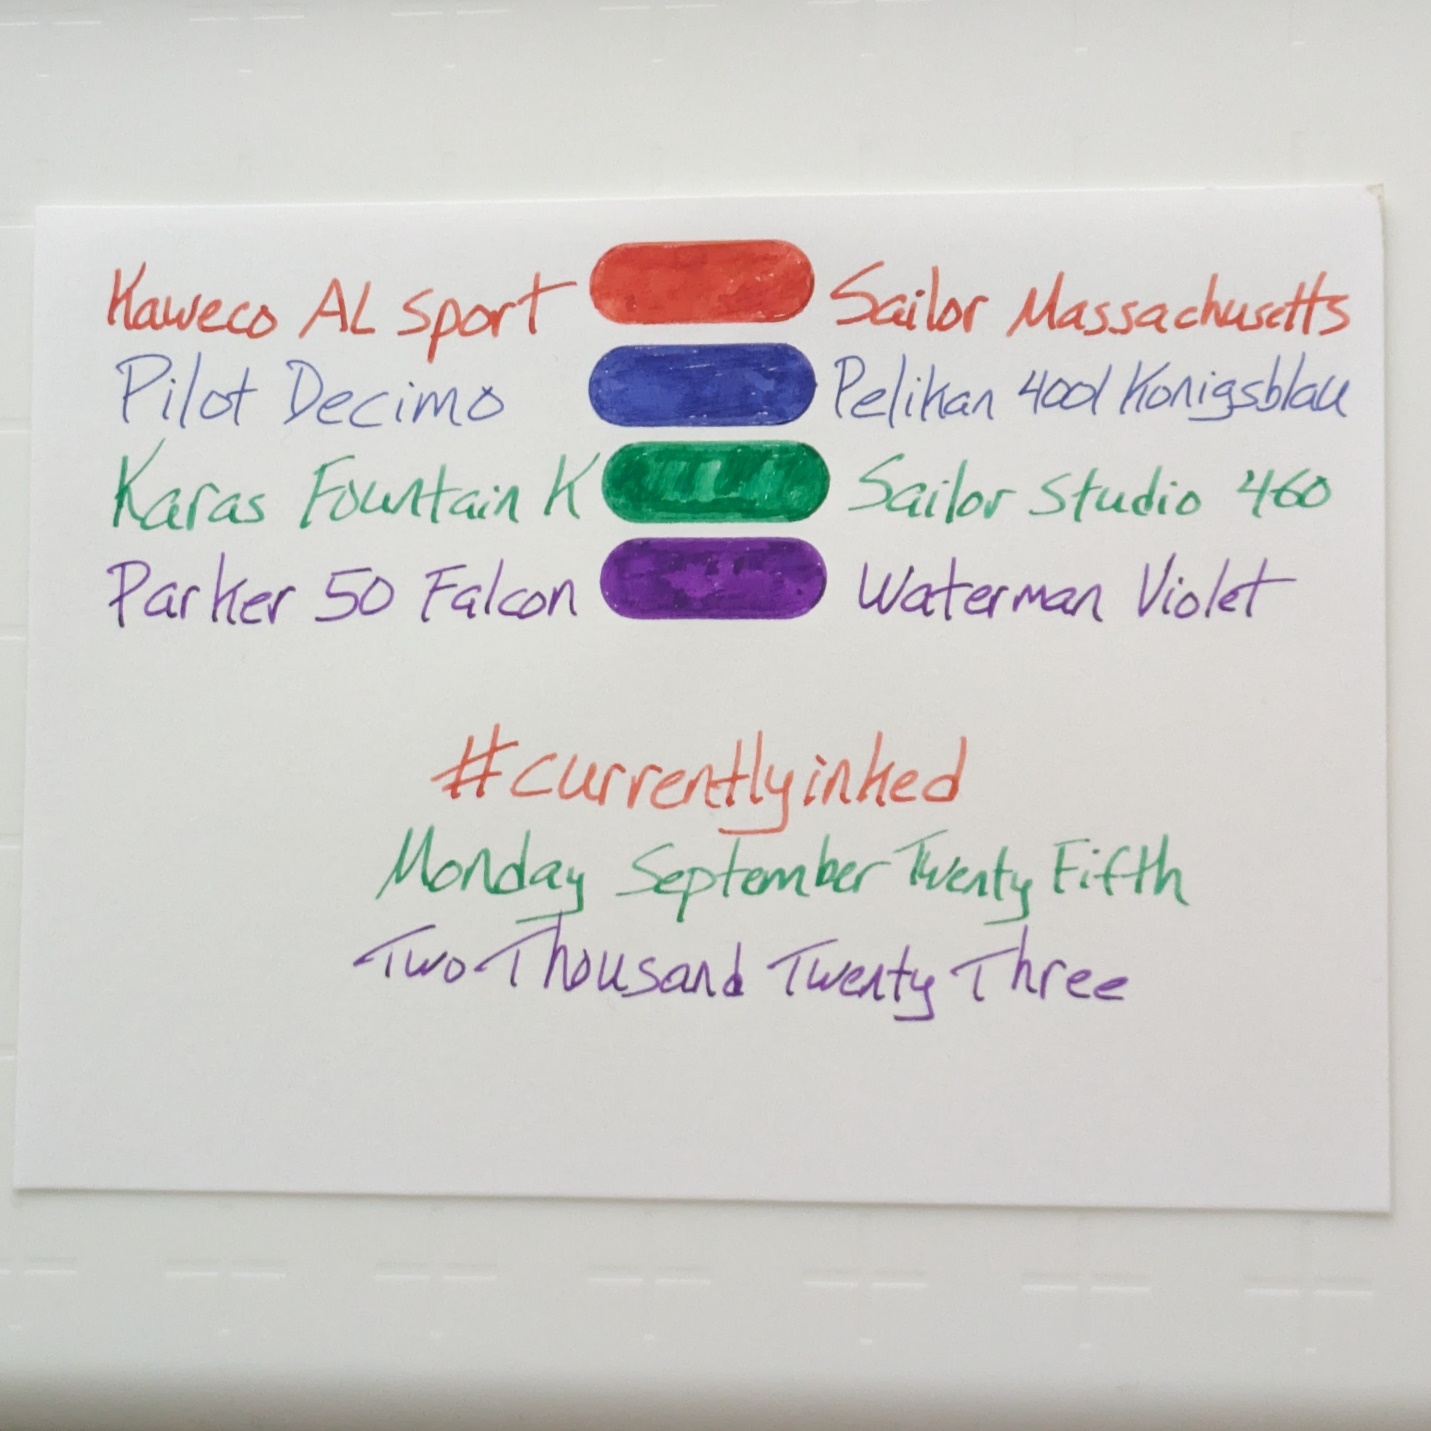 Kaweco AL Sport Sailor Massachusetts
Pilot Decimo Pelikan 4001 Konigsblau
Karas Fountain K Sailor Studio 460
Parker 50 Falcon Waterman Violet
#currentlyinked
Monday September Twenty Fifth
Two Thousand Twenty Three